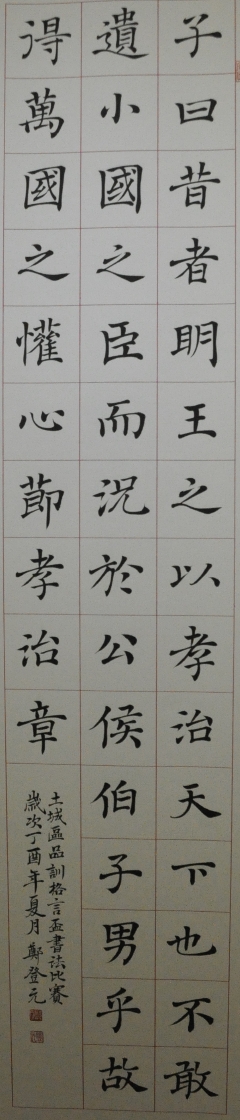 子曰昔者明王之以孝治天下也不敢
遺小國之臣而況於公侯伯子男乎故
得萬國之懽心節孝治章
土城區品訓格言盃書法比賽
歲次丁酉年夏月鄭登元